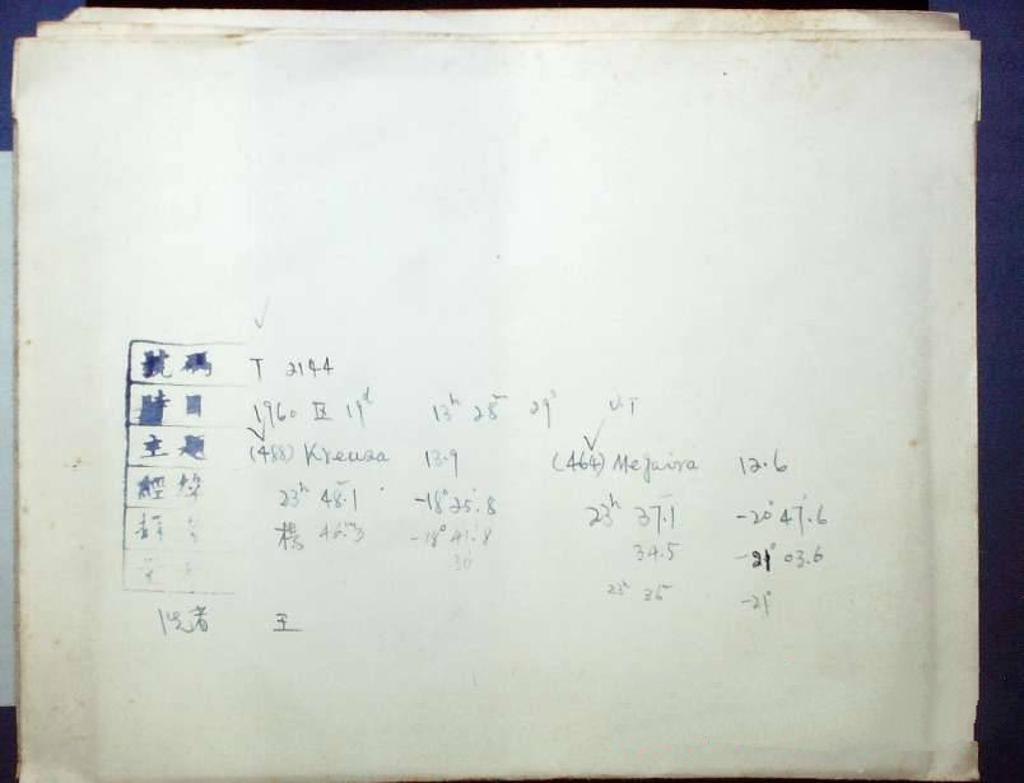 號碼 T 2144
時日 1960 IX 19d 13h 28m 29s UT
主題 (488) Kreusa 13.9 (464) Megaira 12.6
經緯 23h 48.1 -18° 25.8 23h 37.1 -20° 47.6
46.3 -18° 41.8 34.5 -21° 03.6
30 23h 35m -21°
王